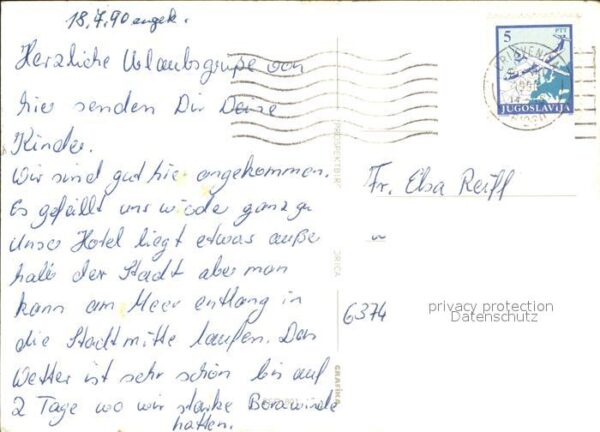 18.7.90 angek.
Herzliche Urlaubsgrüße von
hier senden Dir Deine
Kinder.
Wir sind gut hier angekommen.
Es gefällt uns wieder ganz gu
Unser Hotel liegt etwas auße
halb der Stadt aber man
kann am Meer entlang in
die Stadtmitte laufen. Das
Wetter ist sehr schön bis auf
2 Tage wo wir starke Borawinde
hatten.
5
PTT
JUGOSLAVIJA
CRIKVENICA
1990
14
51260
Fr. Elsa Reiff
"
6374
privacy protection
Datenschutz